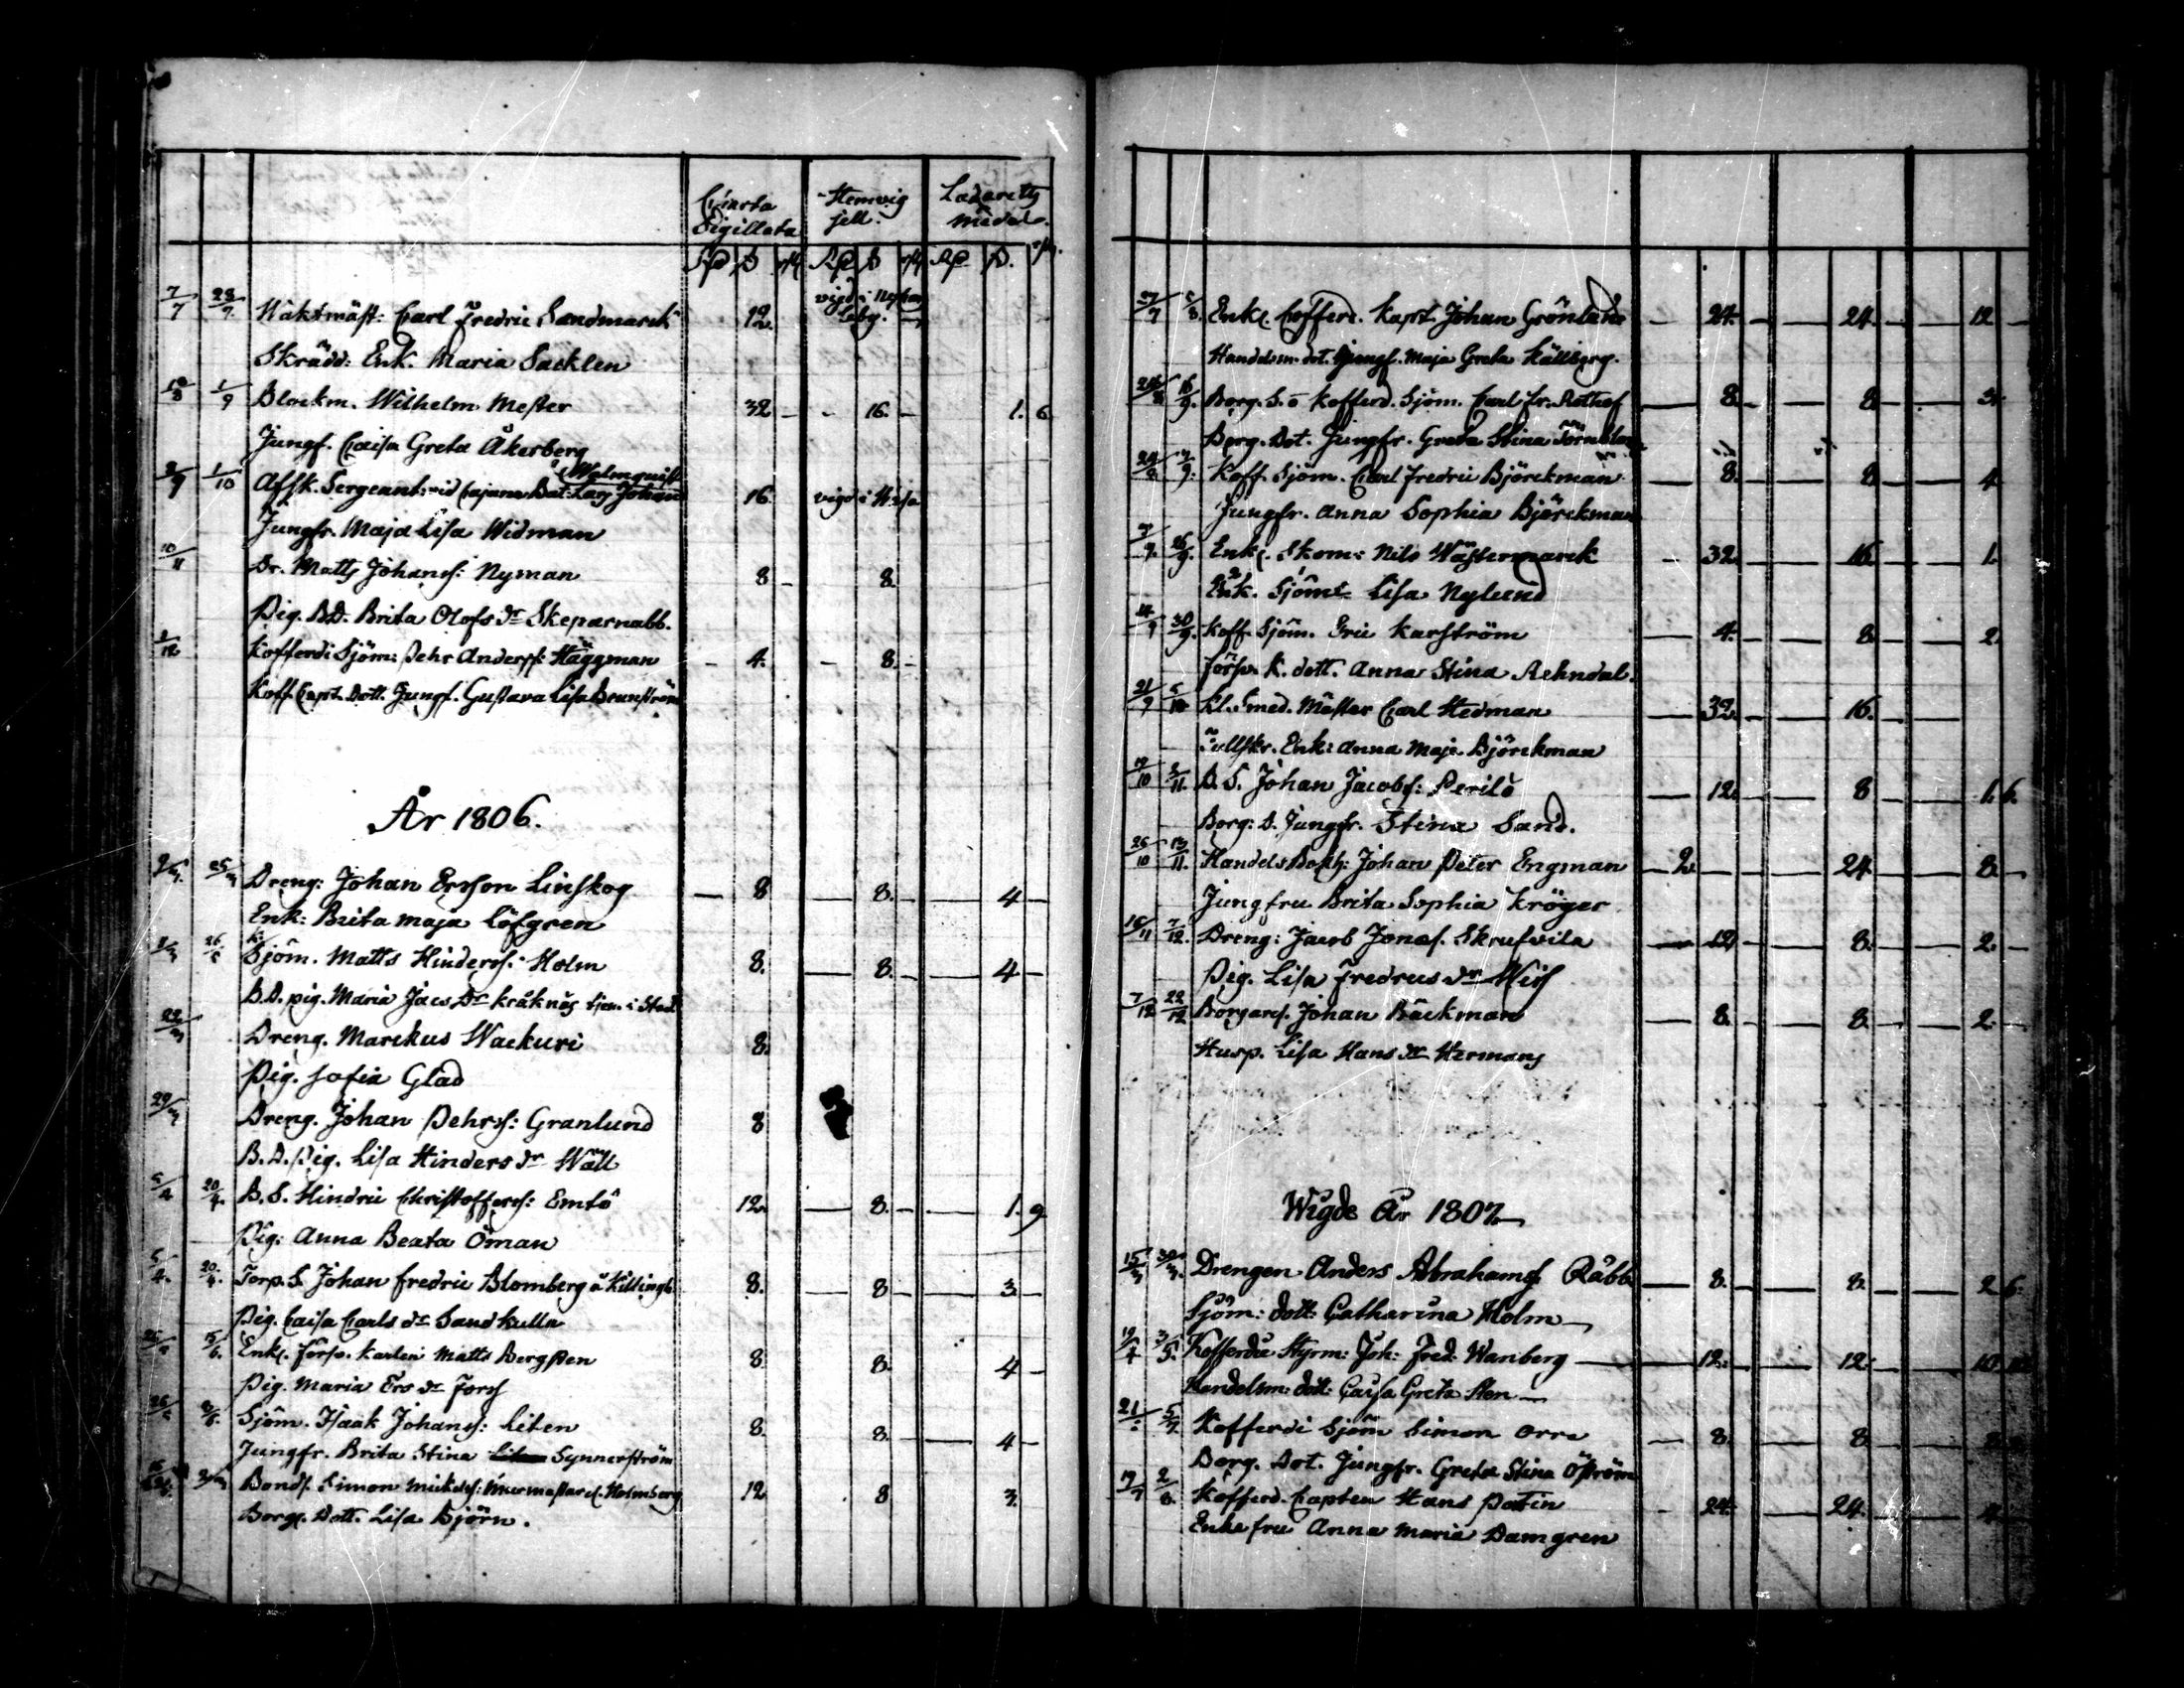 Charta Sigillata | Hemvig sell. | Lazaretts medel.
Rp ß rst | Rp ß rst | Rp ß. rst.
7/7 28/7 Waktmäst: Carl Fredric Sandmarck 12. vigd i
Skrädd: Enk. Maria Sacklen
18/8 1/9 Blockm. Wilhelm Mester 32 - - 16. - 1. 6
Jungf. Caisa Greta Åkerberg
Malmquist
1/10 Afsk. Sergeant vid Cajana Bat: Lars Johan 16. vigd i Wasa
Jungfr. Maja Lisa Widman
10/11 Dr. Matts Johanss: Nyman 8 - 8.
Pig. B.D. Brita Olofs dr Skeparnabb.
1/12 Kofferdi Sjöm: Pehr Anderss: Häggman - 4. - 8. -
Koff. Capt. Dott. Jungf. Gustava Lisa Brunström
År 1806.
9/3. 25/3 Dreng: Johan Ersson Linskog — 8 — 8. — 4 —
Enk: Brita Maja Löfgren
K.
Sjöm. Matts Hinderss: Holm 8. — 8. — 4 —
B.D. pig. Maria Jacs Dr Kråknäs tjen. i Stad
22/3 Dreng. Marckus Wackuri 8.
Pig. Sofia Glad
29/3 Dreng. Johan Pehrss: Granlund 8
B.D. Pig. Lisa Hinders dr Wäll
5/4 20/4. B.S. Hindric Christofferss: Emtö 12. — 8. — 1. 9
Pig: Anna Beata Öman
5/4. 20/4. Torp. S. Johan Fredric Blomberg å Killingh. 8. — 8 — 3 —
Pig. Caisa Carls dr Sandkulla
15/6. Enkl. Förso. Karlen Matts Bergsten 8. 8. 4 —
Pig. Maria Ers dr Forss
Sjöm. Isaak Johanss: Liten 8. 8. — 4 —
Jungfr. Brita Stina Synnerström
Bonds. Simon Mickelss: Murmästares. Holmberg 12 8 3.
Borg. Dott. Lisa Björn.
27/7 Enkl. Cofferd. Kapt. Johan Grönlund — 24. — 24. — 12 —
Handelsm. dot. Jungf. Maja Greta Källberg.
16/9. Borg. S. o Kofferd. Sjöm. Carl Fr. Rothof — 8. — 8. — 3.
Borg. Dot. Jungfr. Greta Stina
Koff. Sjöm. Carl Fredric Björckman — 8. — 8 — 4
Jungfr. Anna Sophia Björckman
7/9. 26/9. Enkl. Skom: Nils Wästermarck — 32. — 16. — 1.
Enk. Sjöms Lisa Nylund
14/9 30/9. Koff. Sjöm. Eric Karström — 4. — 8. — 2.
Förso. K. dott. Anna Stina Rehndal.
21/9 5/10 Kl. Smed. Mäster Carl Hedman — 32. — 16. —
Tullskr. Enk: Anna Maja Björckman
19/10 2/11. B.S. Johan Jacobs: Perilö — 12. — 8 — 1. 6.
Borg: D. Jungfr. Stina Sand.
26/10 13/11. Handels Bokh: Johan Peter Engman — 2 — 24 — 8. —
Jungfru Brita Sophia Kröger
16/11 7/12. Dreng: Jacob Jonas. Skrufvila — 12 — 8. — 2. —
Pig. Lisa Fredrics dr Wiss
7/12 22/12 Borgares. Johan Bäckman — 8. — 8. — 2. —
Husp. Lisa Hans dr Hermans
Wigde År 1807.—
15/3 30/3. Drengen Anders Abrahamss Råbb — 8. — 8. — 2 6.
Sjöm: dott: Catharina Holm —
19/4 3/5. Kofferdie Styrm: Joh: Fred: Wanberg — 12. — 12. — 10
Handelsm: dott: Caisa Greta Sten —
Kofferdi Sjöm Simon Orre — 8. — 8.
Borg. Dot. Jungfr. Greta Stina Öström
19/7 2/8. Kofferd. Capten Hans Patin - 24. — 24. — 4
Enkefru Anna Maria Damgren